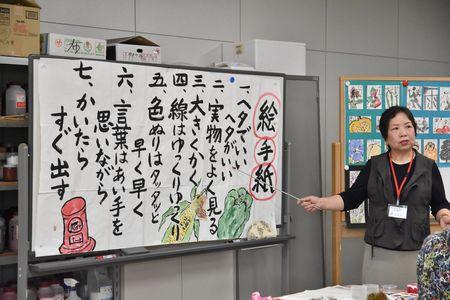 絵手紙
一、ヘタでいい
ヘタがいい
二、実物をよく見る
三、大きくかく
四、線はゆっくりゆっくり
五、色ぬりはタッタッと
早く早く
六、言葉はあい手を
思いながら
七、かいたら
すぐ出す